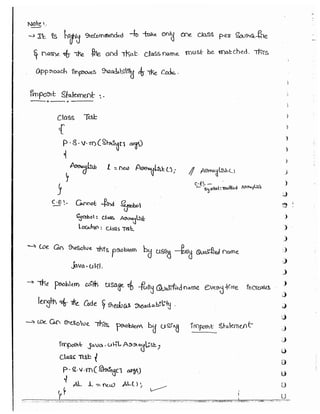 Note:
→ It is highly recommended to take only one class per source file
& name of the file and that class name must be matched. This
approach improves readability of the code.
Import Statement :-
class Test
{
p.s.v.m(String[] args)
{
ArrayList l = new ArrayList(); // ArrayList()
}
}
C.E:-
symbol: method ArrayList
C.E:- Cannot find symbol
symbol: class ArrayList
Location: class Test
→ we can resolve this problem by using fully Qualified name
java.util.
→ The problem with usage of fully Qualified name every time increases
length of the code & reduces readability.
→ we can resolve this problem by using Import statement
import java.util.ArrayList;
class Test {
p.s.v.m(String[] args)
{
AL l = new AL();
}}